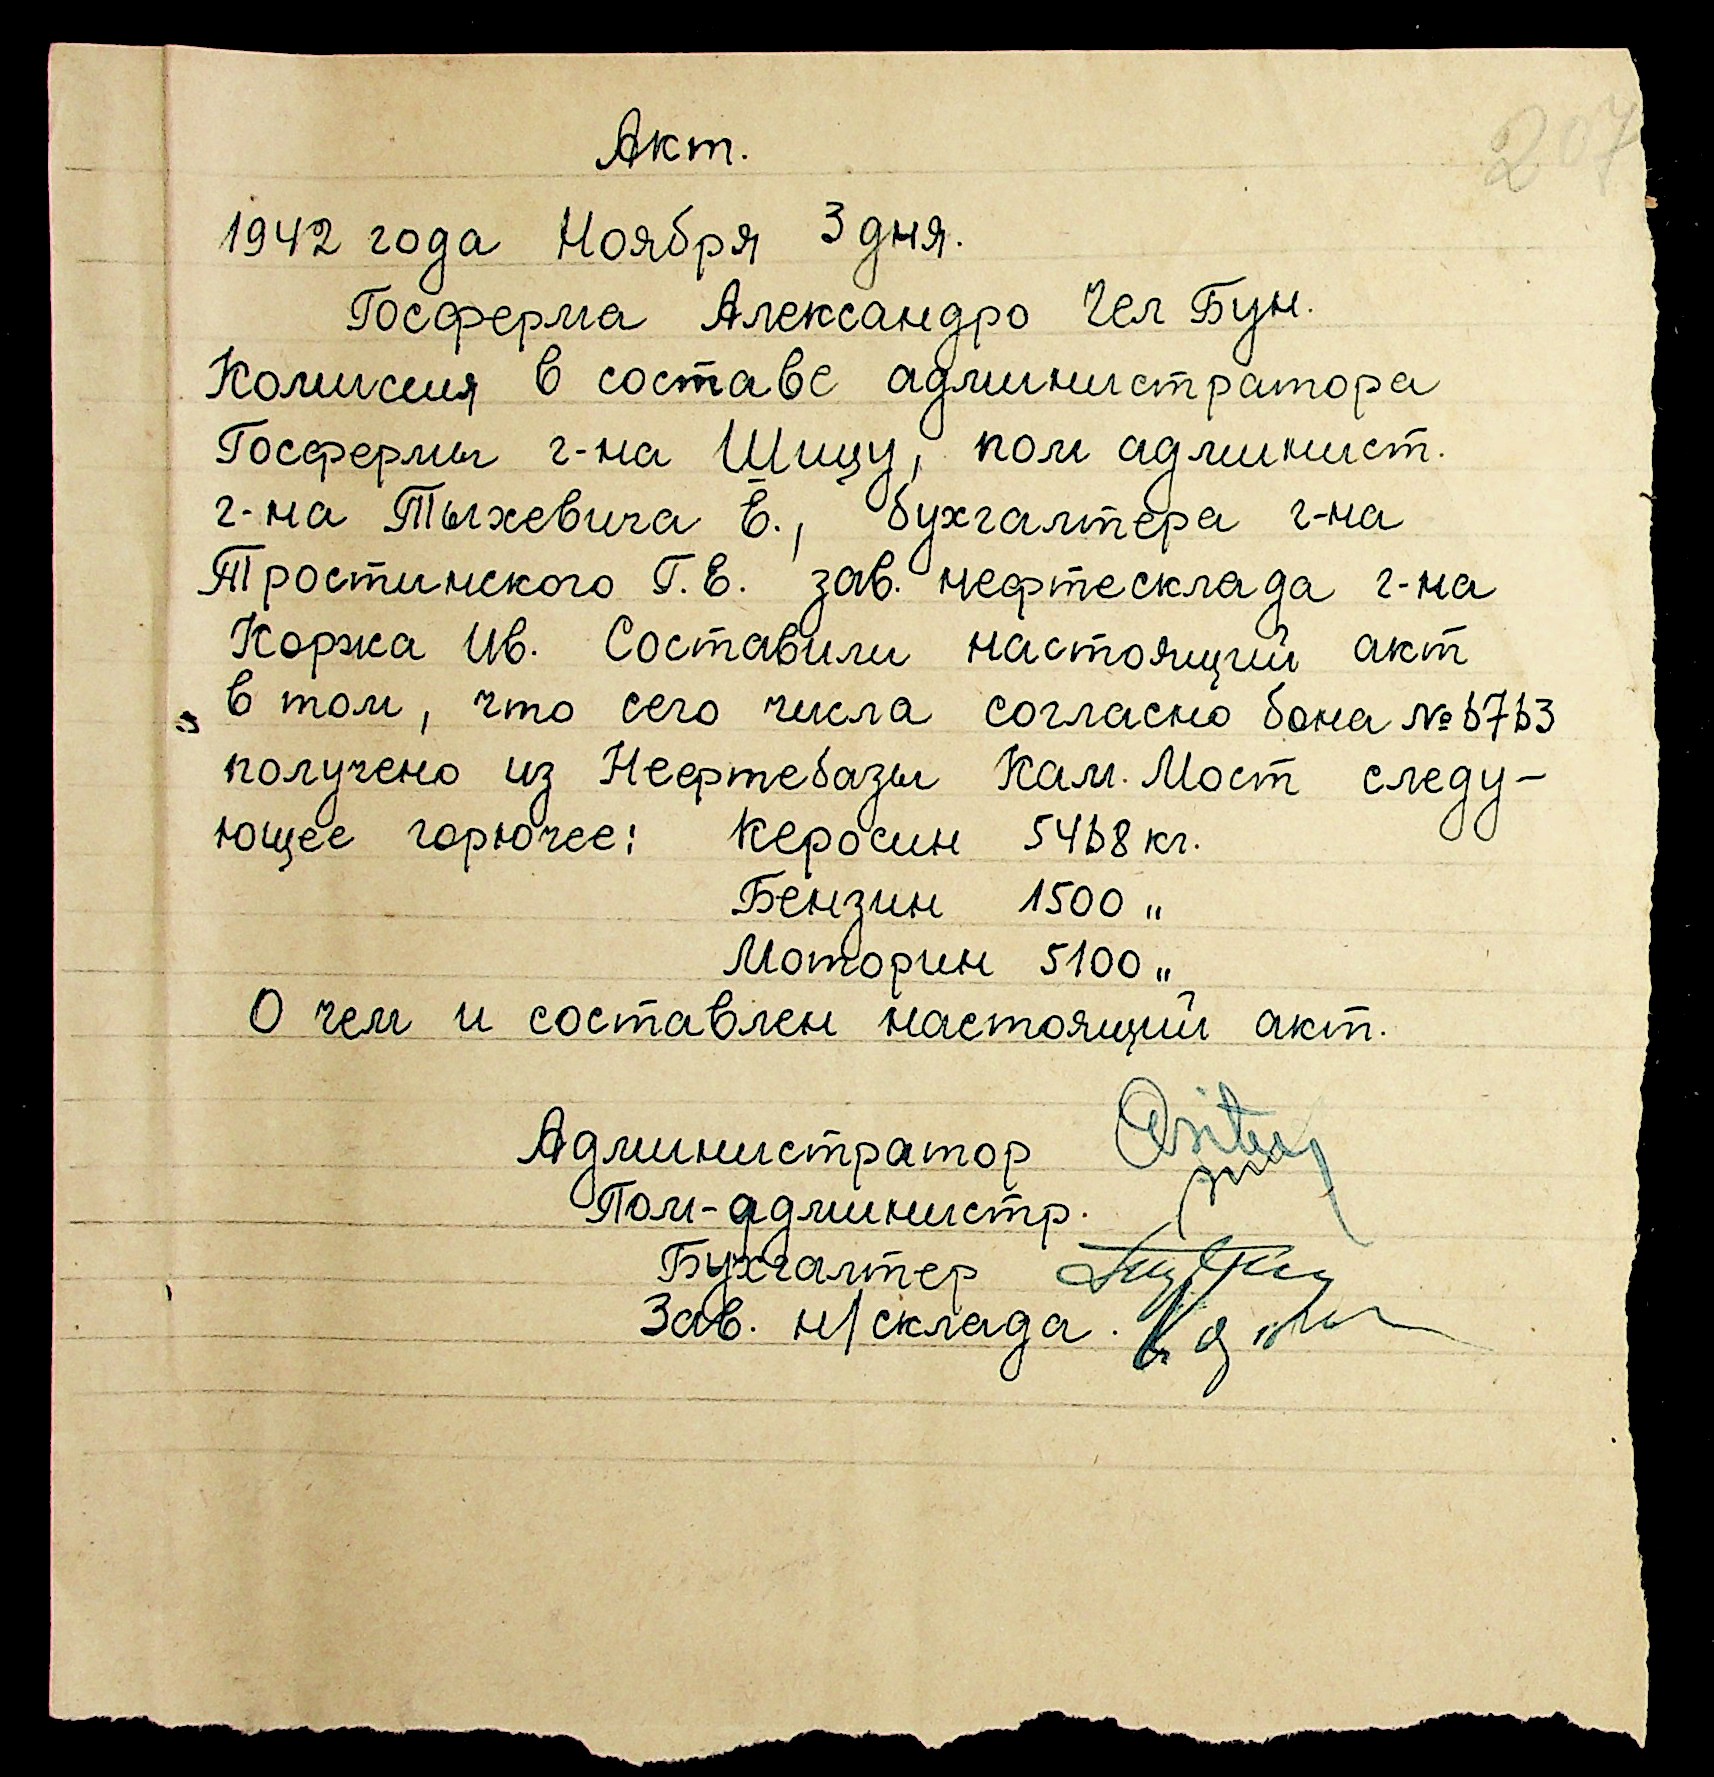 207
Акт.
1942 года Ноября 3 дня.
Госферма Александро Чел Бун.
Комиссия в составе администратора
Госфермы г-на Шицу, пом админист.
г-на Тыхевича Е., бухгалтера г-на
Тростинского Г.Е. зав. нефтесклада г-на
Коржа Ив. Составили настоящий акт
в том, что сего числа согласно бона № 6763
получено из Нефтебазы Кам. Мост следу-
ющее горючее: Керосин 5468 кг.
Бензин 1500 "
Моторин 5100 "
О чем и составлен настоящий акт.
Администратор
Пом-администр.
Бухгалтер
Зав. н/склада.